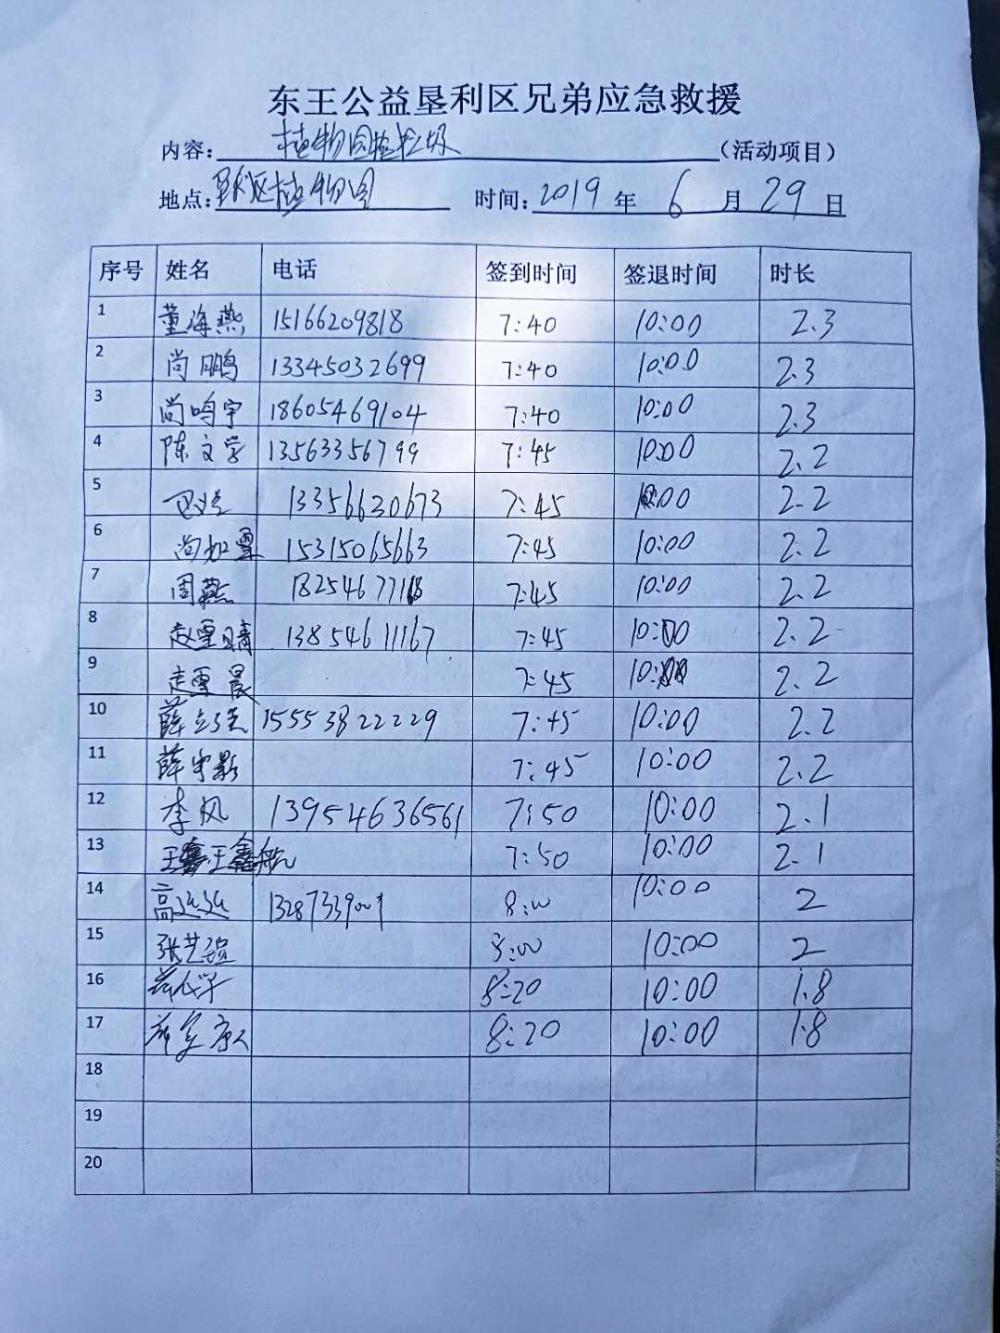 东王公益垦利区兄弟应急救援
内容: 植物园捡垃圾 (活动项目)
地点: 垦利区植物园 时间: 2019 年 6 月 29 日
序号 姓名 电话 签到时间 签退时间 时长
1 董海燕 15166209818 7:40 10:00 2.3
2 尚鹏 13345032699 7:40 10:00 2.3
3 尚鸣宇 18605469104 7:40 10:00 2.3
4 陈文学 13563356799 7:45 10:00 2.2
5 13356620673 7:45 10:00 2.2
6 尚如 15315065663 7:45 10:00 2.2
7 周燕 7:45 10:00 2.2
8 赵雪晴 13854611167 7:45 10:00 2.2
9 晨 7:45 10:00 2.2
10 薛 15553822229 7:45 10:00 2.2
11 薛宇 7:45 10:00 2.2
12 李风 13954636561 7:50 10:00 2.1
13 王鑫航 7:50 10:00 2.1
14 高 13287339009 8:00 10:00 2
15 张艺 8:00 10:00 2
16 8:20 10:00 1.8
17 8:20 10:00 1.8
18
19
20